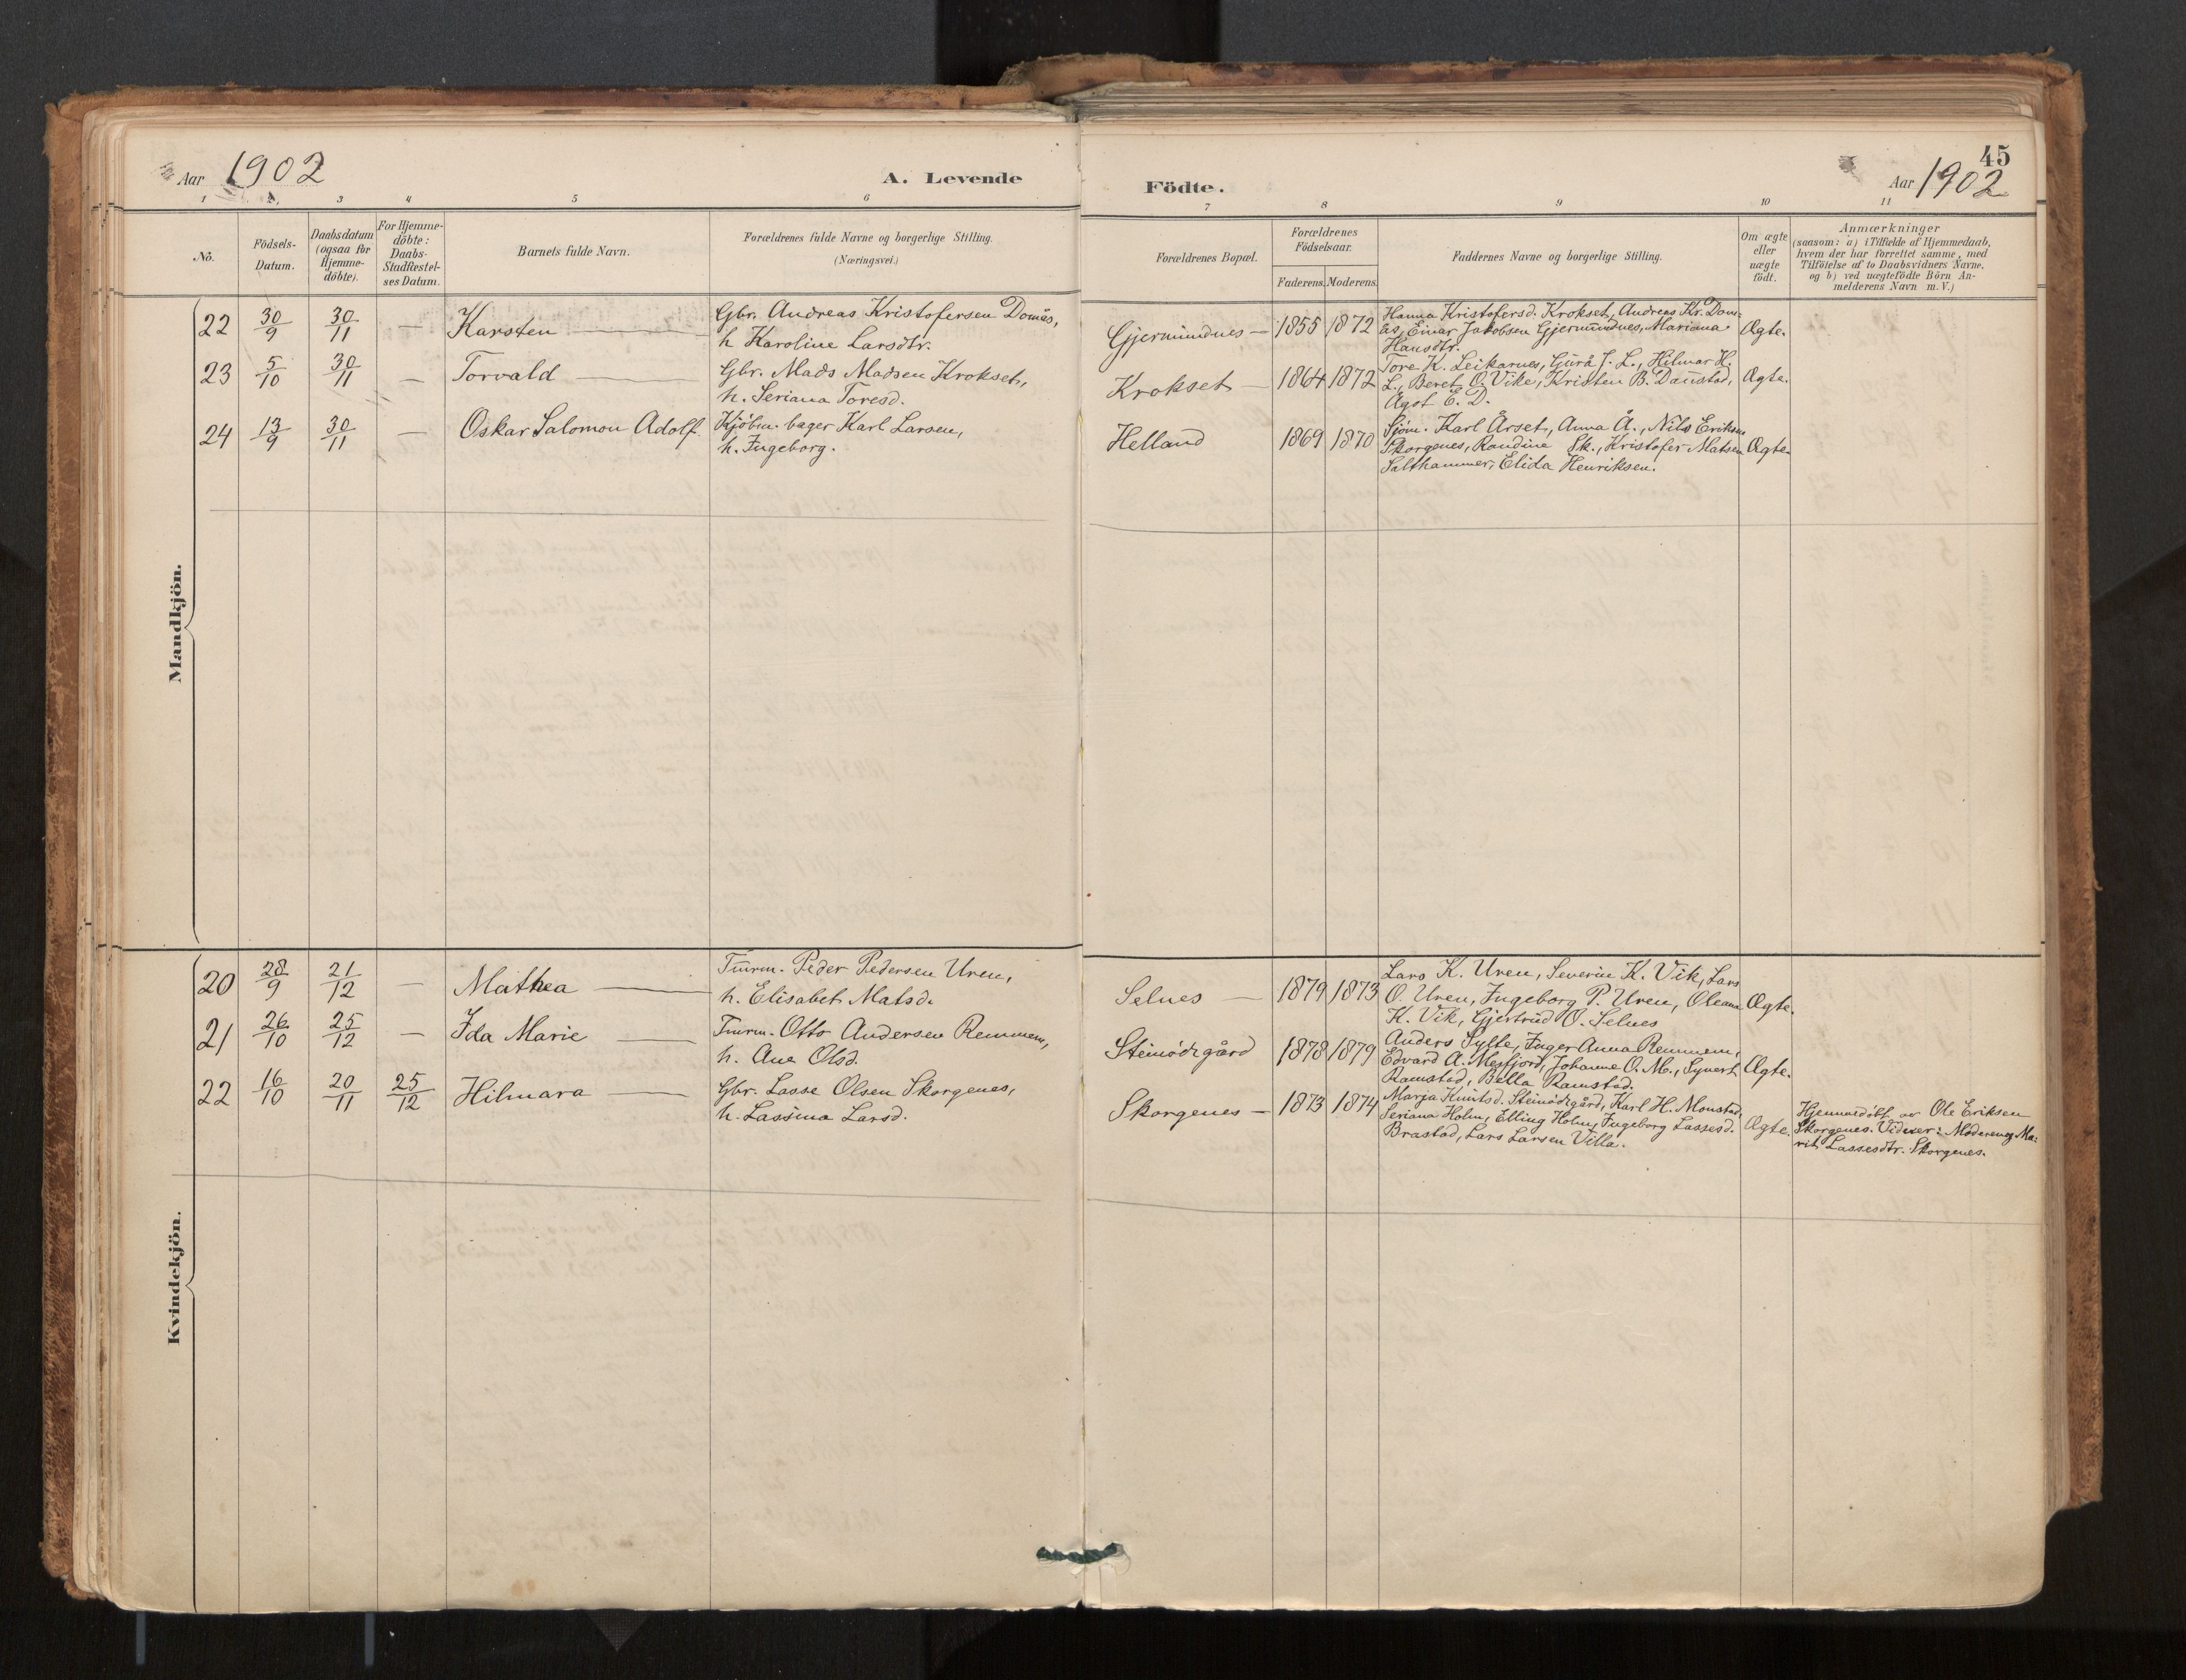 45
Aar 1902
A. Levende
Födte.
Aar 1902
1 2 3 4 5 6 7 8 9 10 11
No.
Födsels-
Datum.
Daabsdatum
(ogsaa for
Hjemme-
döbte).
For Hjemme-
döbte:
Daabs-
Stadfæstel-
ses Datum.
Barnets fulde Navn.
Forældrenes fulde Navne og borgerlige Stilling.
(Næringsvei.)
Forældrenes Bopæl.
Forældrenes
Födselsaar.
Faderens. Moderens.
Faddernes Navne og borgerlige Stilling.
Om ægte
eller
uægte
födt.
Anmærkninger
(saasom: a) i Tilfælde af Hjemmedaab,
hvem der har forrettet samme, med
Tilföielse af to Daabsvidners Navne,
og b) ved uægtefödte Börn An-
melderens Navn m. V.)
Mandkjön.
22 30/9 30/11 — Karsten —
Gbr. Andreas Kristofersen Domås,
h Karoline Larsdtr.
Gjermundnes — 1855 1872
Hanna Kristofersd. Krokset, Andreas Kr. Dom-
ås, Einar Jakobsen Gjermundnes, Mariana
Hansdtr.
Ægte.
23 5/10 30/11 — Torvald —
Gbr. Mads Madsen Krokset,
h. Seriana Toresd.
Krokset — 1864 1872
Tore K. Leikarnes, Gurå J. L., Hilmar H.
L., Beret O. Vike, Kristen B. Daustad,
Agot E. D.
Ægte.
24 13/9 30/11 — Oskar Salomon Adolf.
Kjöbm. bager Karl Larsen,
h. Ingeborg.
Helland 1869 1870
Sjöm. Karl Årset, Anna Å., Nils Eriksen
Skorgenes, Randine Sk., Kristofer Matsen
Salthammer, Elida Henriksen.
Ægte.
Kvindekjön.
20 28/9 21/12 — Mathea —
Tmrm. Peder Pedersen Uren,
h. Elisabet Matsd.
Selnes — 1879 1873
Lars K. Uren, Severin K. Vik, Lars
O. Uren, Ingeborg P. Uren, Oleana
K. Vik, Gjertrud O. Selnes
Ægte.
21 26/10 25/12 — Ida Marie —
Tmrm. Otto Andersen Remmem,
h. Ane Olsd.
Steinödegård 1878 1879
Anders Sylte, Inger Anna Remmem,
Edvard A. Mesfjord, Johanne O. M., Synert
Ramstad, Bella Ramstad.
Ægte.
22 16/10 20/11 25/12 Hilmara —
Gbr. Lasse Olsen Skorgenes,
h. Lassina Larsd.
Skorgenes — 1873 1874
Marja Knutsd. Steinödegård, Karl H. Monstad,
Seriana Holm, Elling Holm, Ingeborg Lassesd.
Brastad, Lars Larsen Villa.
Ægte.
Hjemmedöbt av Ole Eriksen
Skorgenes. Vidner: Moderen og Ma-
rit Lassesdtr. Skorgenes.